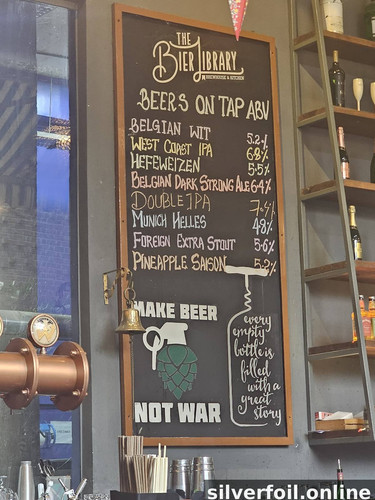 THE
BIER LIBRARY
BREWHOUSE & KITCHEN
BEERS ON TAP ABV
BELGIAN WIT 5.2%
WEST COAST IPA 6.8%
HEFEWEIZEN 5.5%
BELGIAN DARK STRONG ALE 6.4%
DOUBLE IPA 7.4%
MUNICH HELLES 4.8%
FOREIGN EXTRA STOUT 5.6%
PINEAPPLE SAISON 5.2%
MAKE BEER
NOT WAR
every
empty
bottle is
filled
with a
great
story
silverfoil.online